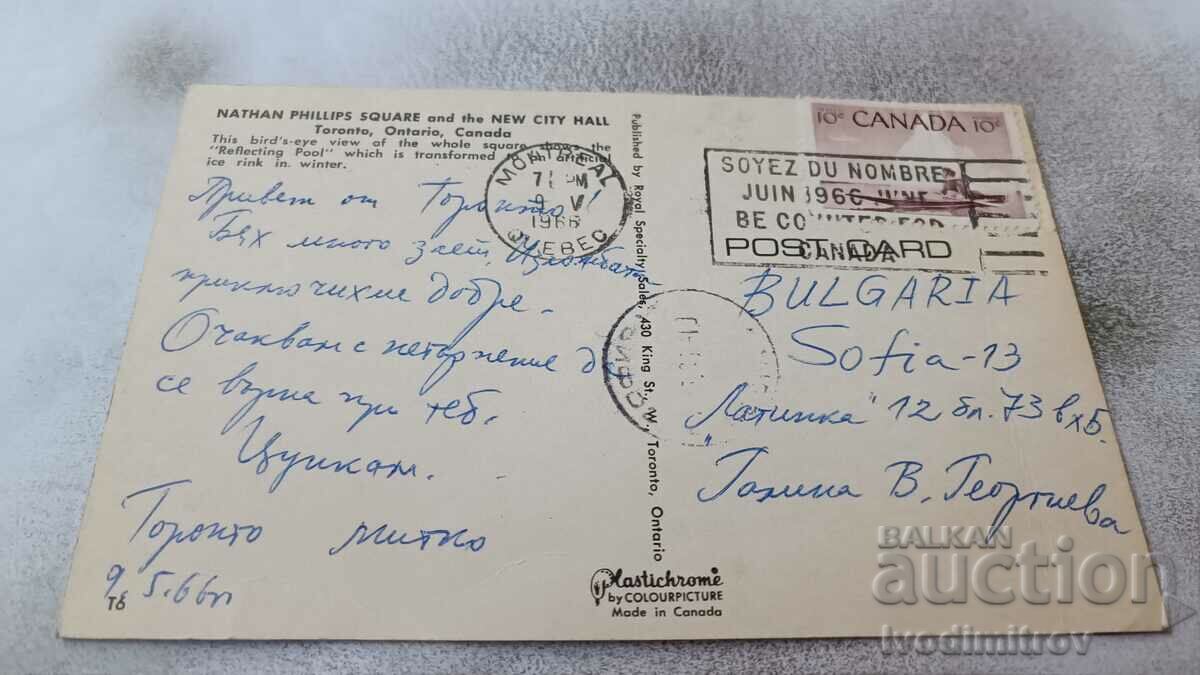 NATHAN PHILLIPS SQUARE and the NEW CITY HALL
Toronto, Ontario, Canada
This bird's-eye view of the whole square shows the
"Reflecting Pool" which is transformed into an artificial
ice rink in winter.
Привет от Торонто!
Бях много зает. Изложбата
приключихме добре.
Очаквам с нетърпение да
се върна при теб.
Цункам.
Торонто Митко
9.5.66г
T6
MONTREAL
PM
9 V
1966
QUEBEC
Published by Royal Specialty Sales, 430 King St., W., Toronto, Ontario
Plastichrome
by COLOURPICTURE
Made in Canada
10¢ CANADA 10¢
SOYEZ DU NOMBRE
JUIN 1966 JUNE
BE COUNTED FOR
CANADA
POST CARD
СОФИЯ
BULGARIA
Sofia-13
"Латинка" 12 бл. 73 вх Б.
Галина В. Георгиева
BALKAN
auction
ivodimitrov